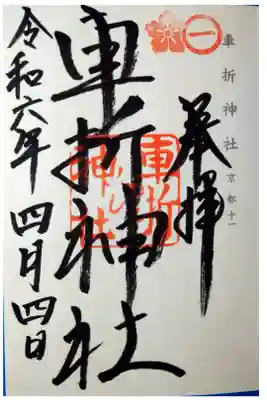 車折神社 京都十一
一
奉拝
車折神社
車折神社
令和六年 四月四日